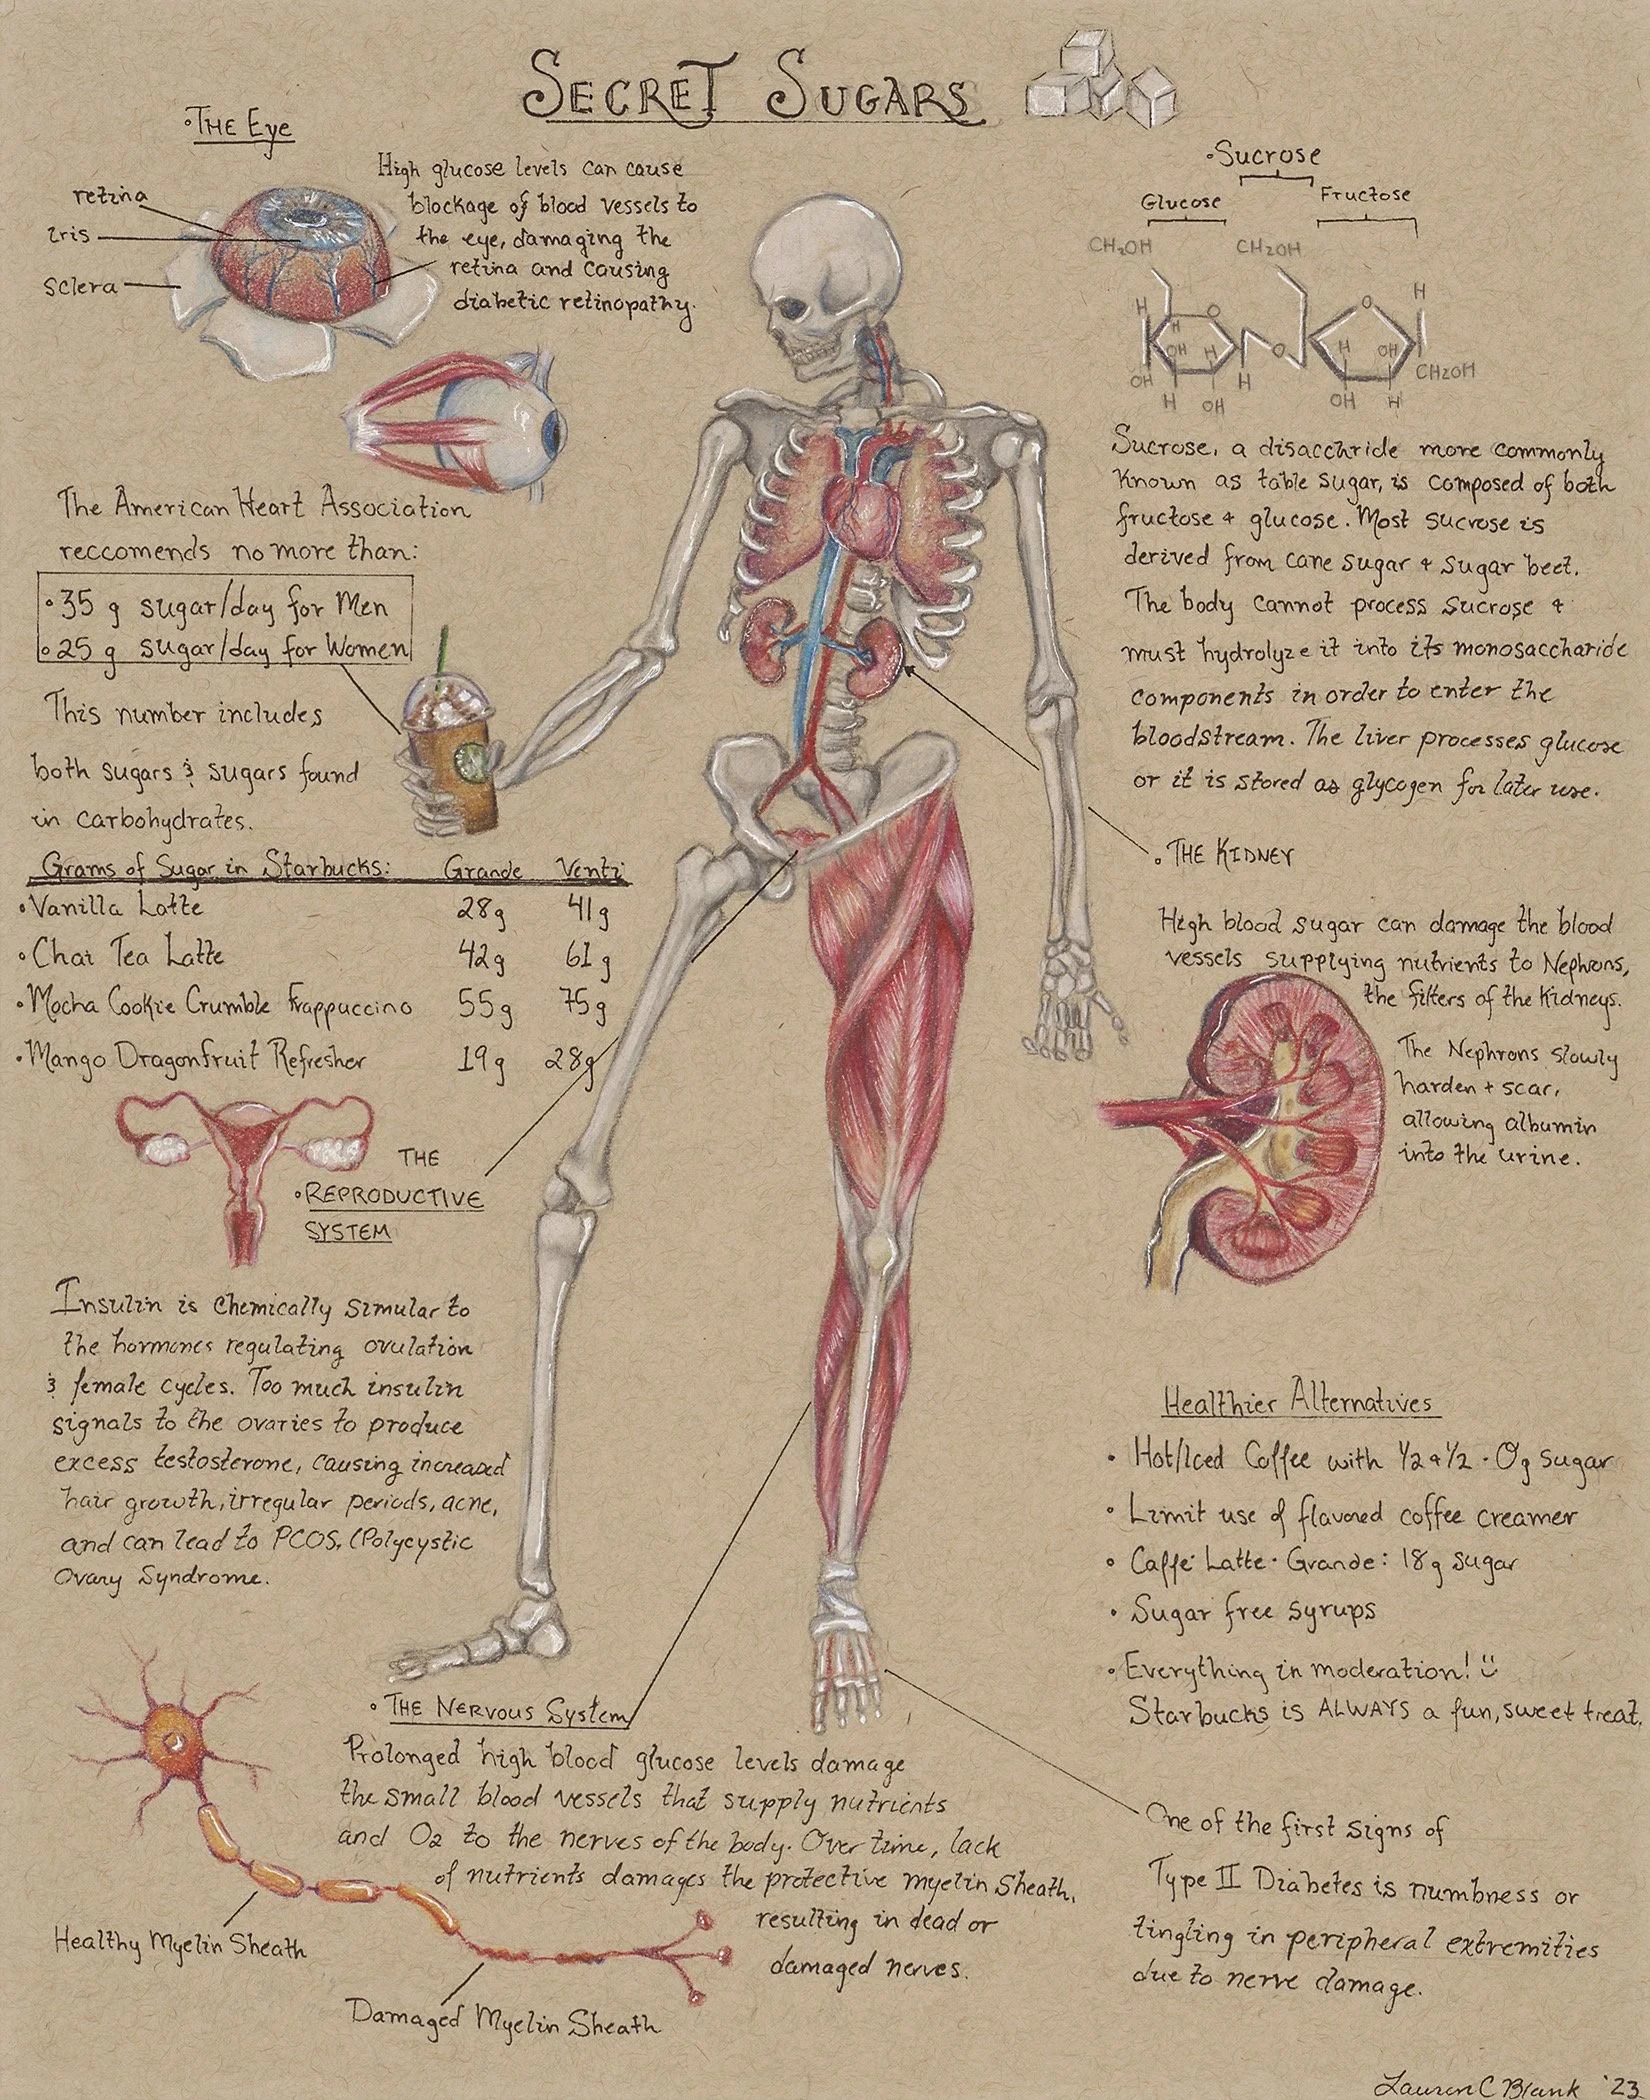 SECRET SUGARS
•THE Eye
retina
iris
Sclera
High glucose levels can cause
blockage of blood vessels to
the eye, damaging the
retina and causing
diabetic retinopathy.
The American Heart Association
reccomends no more than:
•35 g sugar/day for Men
•25 g sugar/day for Women
This number includes
both sugars & sugars found
in carbohydrates.
Grams of Sugar in Starbucks: Grande Venti
•Vanilla Latte 28g 41g
•Chai Tea Latte 42g 61g
•Mocha Cookie Crumble Frappuccino 55g 75g
•Mango Dragonfruit Refresher 19g 28g
THE
•REPRODUCTIVE
SYSTEM
Insulin is chemically simular to
the hormones regulating ovulation
& female cycles. Too much insulin
signals to the ovaries to produce
excess testosterone, causing increased
hair growth, irregular periods, acne,
and can lead to PCOS. (Polycystic
Ovary Syndrome.
•THE NERVOUS System
Prolonged high blood glucose levels damage
the small blood vessels that supply nutrients
and O2 to the nerves of the body. Over time, lack
of nutrients damages the protective myelin sheath,
resulting in dead or
damaged nerves.
Healthy Myelin Sheath
Damaged Myelin Sheath
•Sucrose
Glucose
Fructose
CH2OH
CH2OH
H
O
H
H
O
OH
H
O
H
OH
CH2OH
OH
H
H
OH
H
OH
H
Sucrose, a disacchride more commonly
known as table sugar, is composed of both
fructose + glucose. Most sucrose is
derived from cane sugar + sugar beet.
The body cannot process sucrose +
must hydrolyze it into its monosaccharide
components in order to enter the
bloodstream. The liver processes glucose
or it is stored as glycogen for later use.
•THE KIDNEY
High blood sugar can damage the blood
vessels supplying nutrients to Nephrons,
the filters of the Kidneys.
The Nephrons slowly
harden + scar,
allowing albumin
into the urine.
Healthier Alternatives
• Hot/Iced Coffee with 1/2 + 1/2 - 0g sugar
• Limit use of flavored coffee creamer
• Caffè Latte - Grande: 18g sugar
• Sugar free syrups
• Everything in moderation! ü
Starbucks is ALWAYS a fun, sweet treat.
One of the first signs of
Type II Diabetes is numbness or
tingling in peripheral extremities
due to nerve damage.
Lauren C Blank '23